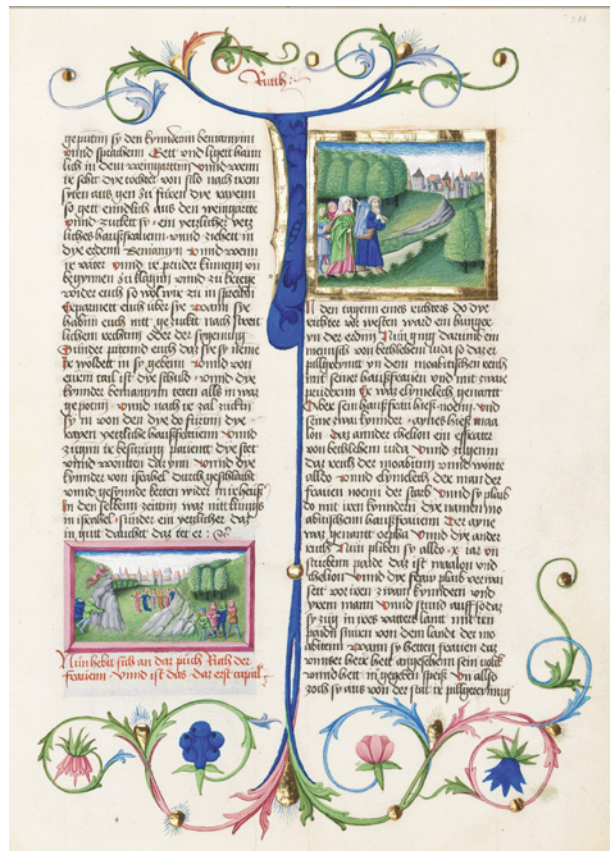 Ruth:
geputtin sy den kynndernn beniamynn
vnnd sprachenn Gett vnd ligett haim
lich in dem weingarttnn vnnd wenn
ir secht dye tochter von silo nach irem
siten aus gen zu furen dye rayenn
so gett eindlich aus den weingartte
vnnd zuckett sy ein yetzlicher yetz
liches haußfrauenn vnnd ziechett in
dye erdenn Beniamynn vnnd wenn
ir vater vnnd ir prueder kumenn vn
begynnen zu klagnn vnnd zu kriege
wider euch so wol wir zu in sprechn
Erparmett euch uber sye wann sye
habnn euch nitt gezuckt nach streitt
lichem rechtnn oder der sygenung
Sunder pittennd euch daz sy sy neme
ir woldett in sy gebenn vnnd von
euerm tail ist dye schuld vnnd dye
kynnder beniamynn teten alls in was
gepotnn vnnd nach ir zal zucktn
sy in von den die do furtnn dye
rayen yetzliche haußfrauenn vnnd
zugnn ir besitzung pauentt dye stet
vnnd wontten dar ynn vnnd dye
kynnder von israhel durch geschlacht
vnnd gesynnde kerten wider in ir heuß
In den selbenn zeittnn was nitt kunig
in israhel sunder ein yetzlicher daz
in gutt dauchtt daz tet er:
Nun hebtt sich an daz puch Ruth der
frauenn vnnd ist das daz erst capitl
In den tagenn eines richters do dye
richter vor westen ward ein hunger
yn der erdnn Nun ging darumb ein
mennsch von bethlehem iuda so daz er
pillgereytt yn dem moabitischen reich
mit seiner haußfrauen vnd mit zwain
kynderenn Er was elymelech genantt
Aber sein haußfrau hieß noemi vnd
seine zwai kynnder aynes hieß maa
lon daz annder chelion ein effrater
von bethlehem iuda vnd zugenn
daz reich der moabittnn vnnd wonte
alldo vnnd elymelech der man der
frauen noemi der starb vnnd sy plaib
do mit iren kynndern dye namen mo
abitischenn haußfrauenn Der ayne
was genantt orpha vnnd dye ander
ruth Nun pliben sy alldo x iar vn
sturbenn paide daz ist maalon vnd
chelion vnnd dye frau plaib verwai
sett vor iren zwain kynndern vnd
yrem mann vnnd stund auff so daz
sy zug in ires vatters lantt mit irn
paidn snuren von dem landt der mo
abitenn Wann sy hetten frauen daz
vnnser herr hett angesehenn sein volk
vnnd hett in gegeben speiß vn allso
zoch sy aus von der stat ir pillgereynung